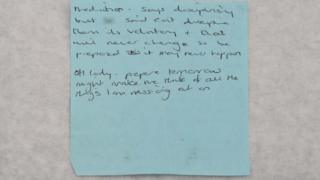 Mediation - Says disciplinary
but said can't discipline
them its voluntary + that
will never change so be
prepared it may never happen
Oh lady - prepare tomorrow
might make me think of all the
things I am missing out on